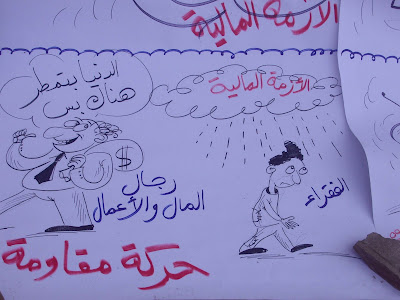 الأزمة المالية
الأزمة المالية
الدنيا بتمطر
هناك بس
$
رجال
المال والأعمال
الفقراء
حركة مقاومة